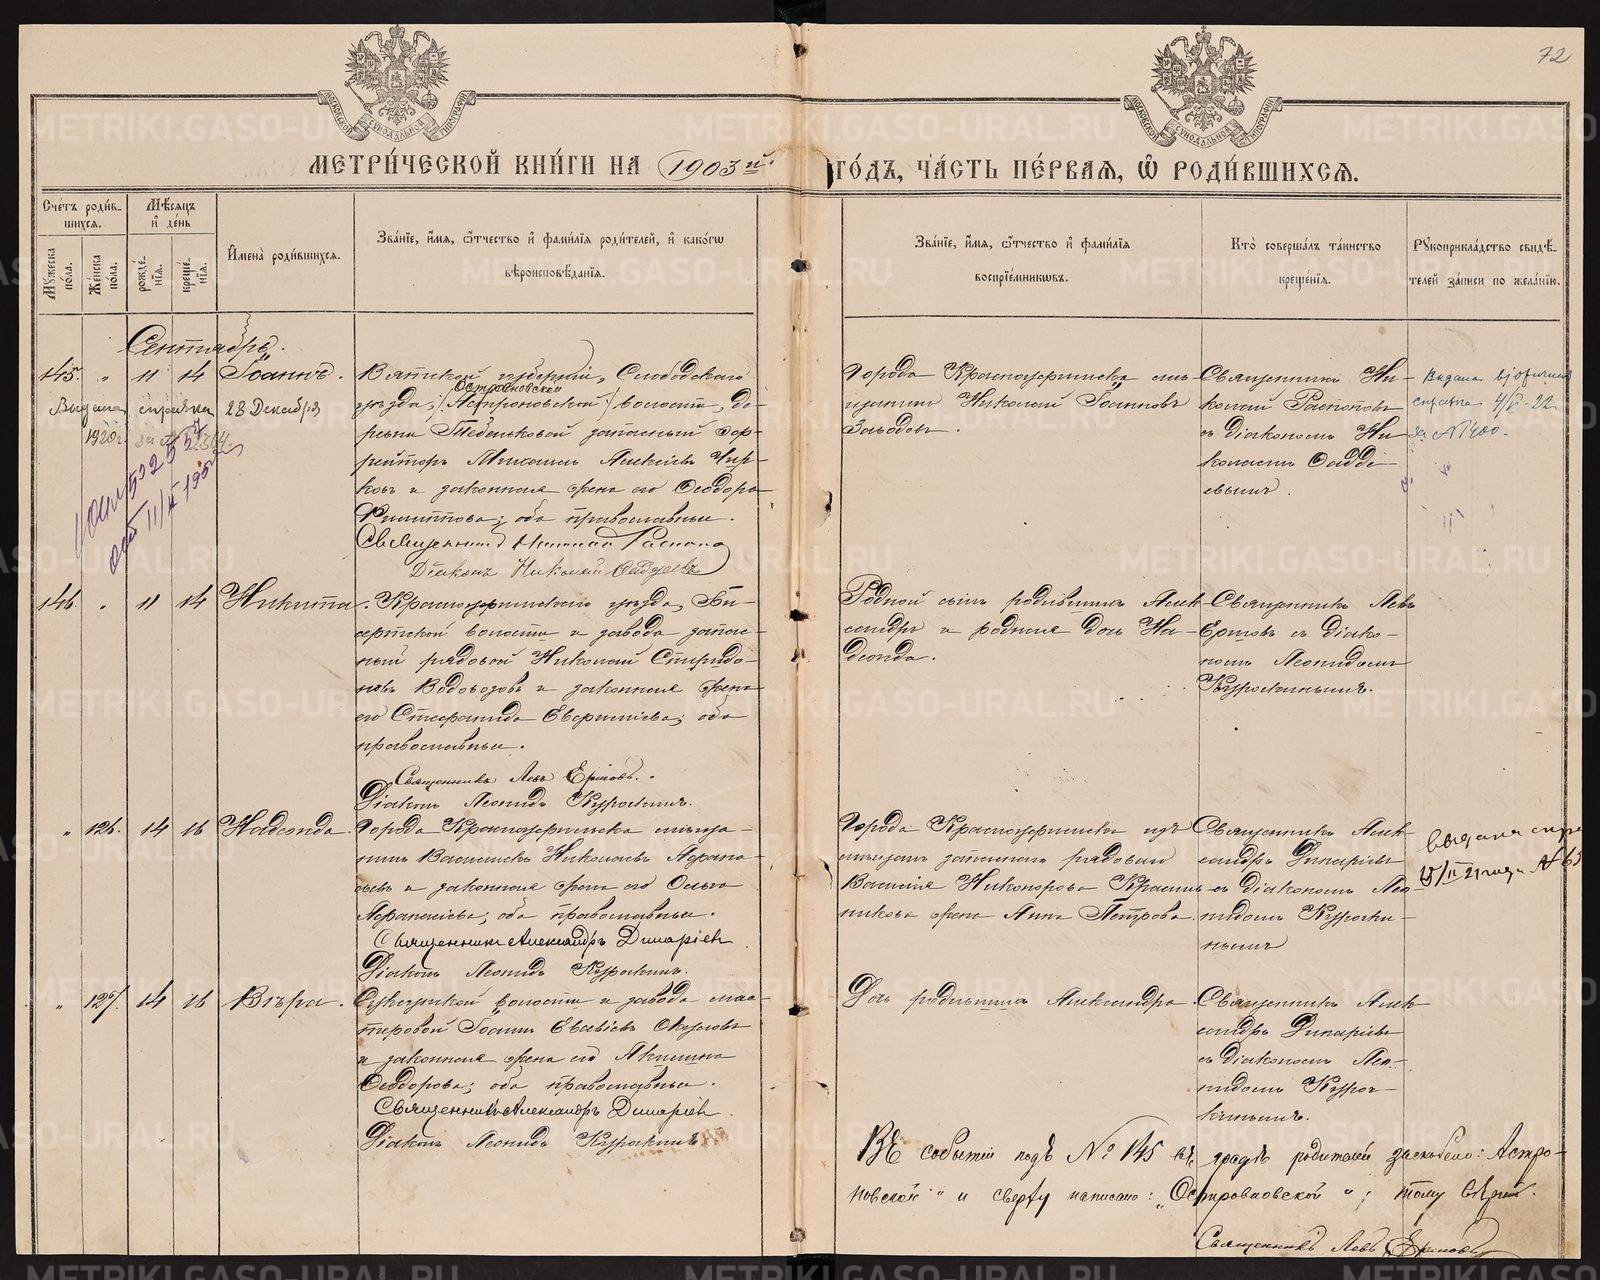 72
МЕТРИ́ЧЕСКОЙ КНИ́ГИ НА 1903й
ГО́ДЪ, ЧА́СТЬ ПЕ́РВАѦ, Ѡ҆ РОДИ́ВШИХСѦ.
Сче́тъ роди́в-
шихсѧ.
Мѣ́сѧцъ
и҆ де́нь
Мꙋ́жеска
по́ла.
Же́нска
по́ла.
рожде́-
нїѧ.
креще́-
нїѧ.
И҆мена̀ роди́вшихсѧ.
Зва́нїе, и҆́мѧ, ѻ҆́тчество и҆ фами́лїѧ роди́телей, и҆ како́гѡ
вѣроисповѣ́данїѧ.
Зва́нїе, и҆́мѧ, ѻ҆́тчество и҆ фами́лїѧ
воспрїе́мникѡвъ.
Кто̀ соверша́лъ та́инство
креще́нїѧ.
Рꙋкоприкла́дство свидѣ́-
телей за́писи по жела́нїю.
Сентябрь.
145. " 11 14 Іоаннъ.
Выдана справка 28 Декабря
1920г.
Вятской губерніи, Слободскаго
Островновской
уѣзда, /Астроновской/ волости, де-
ревни Тебеньковой запасный еф-
рейторъ Михаилъ Алексѣевъ Чир-
ковъ и законная жена его Ѳеодора
Филиппова; оба православные.
Священникъ Николай Распоповъ
Діаконъ Николай Ѳаддеевъ
Города Красноуфимска мѣ-
щанинъ Николай Іоанновъ
Заводовъ.
Священникъ Ни-
колай Распоповъ
съ діакономъ Ни-
колаемъ Ѳадде-
евымъ.
Выдана
справка 4/V-22
за №1400.
146. " 11 14 Никита.
Красноуфимскаго уѣзда, Би-
сертской волости и завода запас-
ный рядовой Николай Спиридо-
новъ Водовозовъ и законная жена
его Стефанида Евгеніева; оба
православные.
Священникъ Левъ Ершовъ.
Діаконъ Леонидъ Курочкинъ.
Родной сынъ родившихъ Алек-
сандръ и родная дочь На-
дежда.
Священникъ Левъ
Ершовъ съ діако-
номъ Леонидомъ
Курочкинымъ.
" 126. 14 16 Надежда.
Города Красноуфимска мѣща-
нинъ Василискъ Николаевъ Афана-
сьевъ и законная жена его Ольга
Афанасіева; оба православные.
Священникъ Александръ Димаріевъ
Діаконъ Леонидъ Курочкинъ.
Города Красноуфимска изъ
мѣщанъ запаснаго рядоваго
Василія Никонорова Красиль-
никова жена Анна Петрова.
Священникъ Алек-
сандръ Димаріевъ
съ діакономъ Лео-
нидомъ Курочки-
нымъ
выдана
" 127. 14 16 Вѣра.
Суксунской волости и завода мас-
теровой Іоаннъ Евсевіевъ Окуловъ
и законная жена его Акилина
Ѳеодорова; оба православные.
Священникъ Александръ Димаріевъ.
Діаконъ Леонидъ Курочкинъ
Дочь родившихъ Александра.
Священникъ Алек-
сандръ Димаріевъ
съ діакономъ Лео-
нидомъ Куроч-
кинымъ.
Въ событіи подъ № 145 въ графѣ родителей заскоблено: Астро-
новской" и сверху написано: "Островновской"; тому вѣрить.
Священникъ Левъ Ершовъ